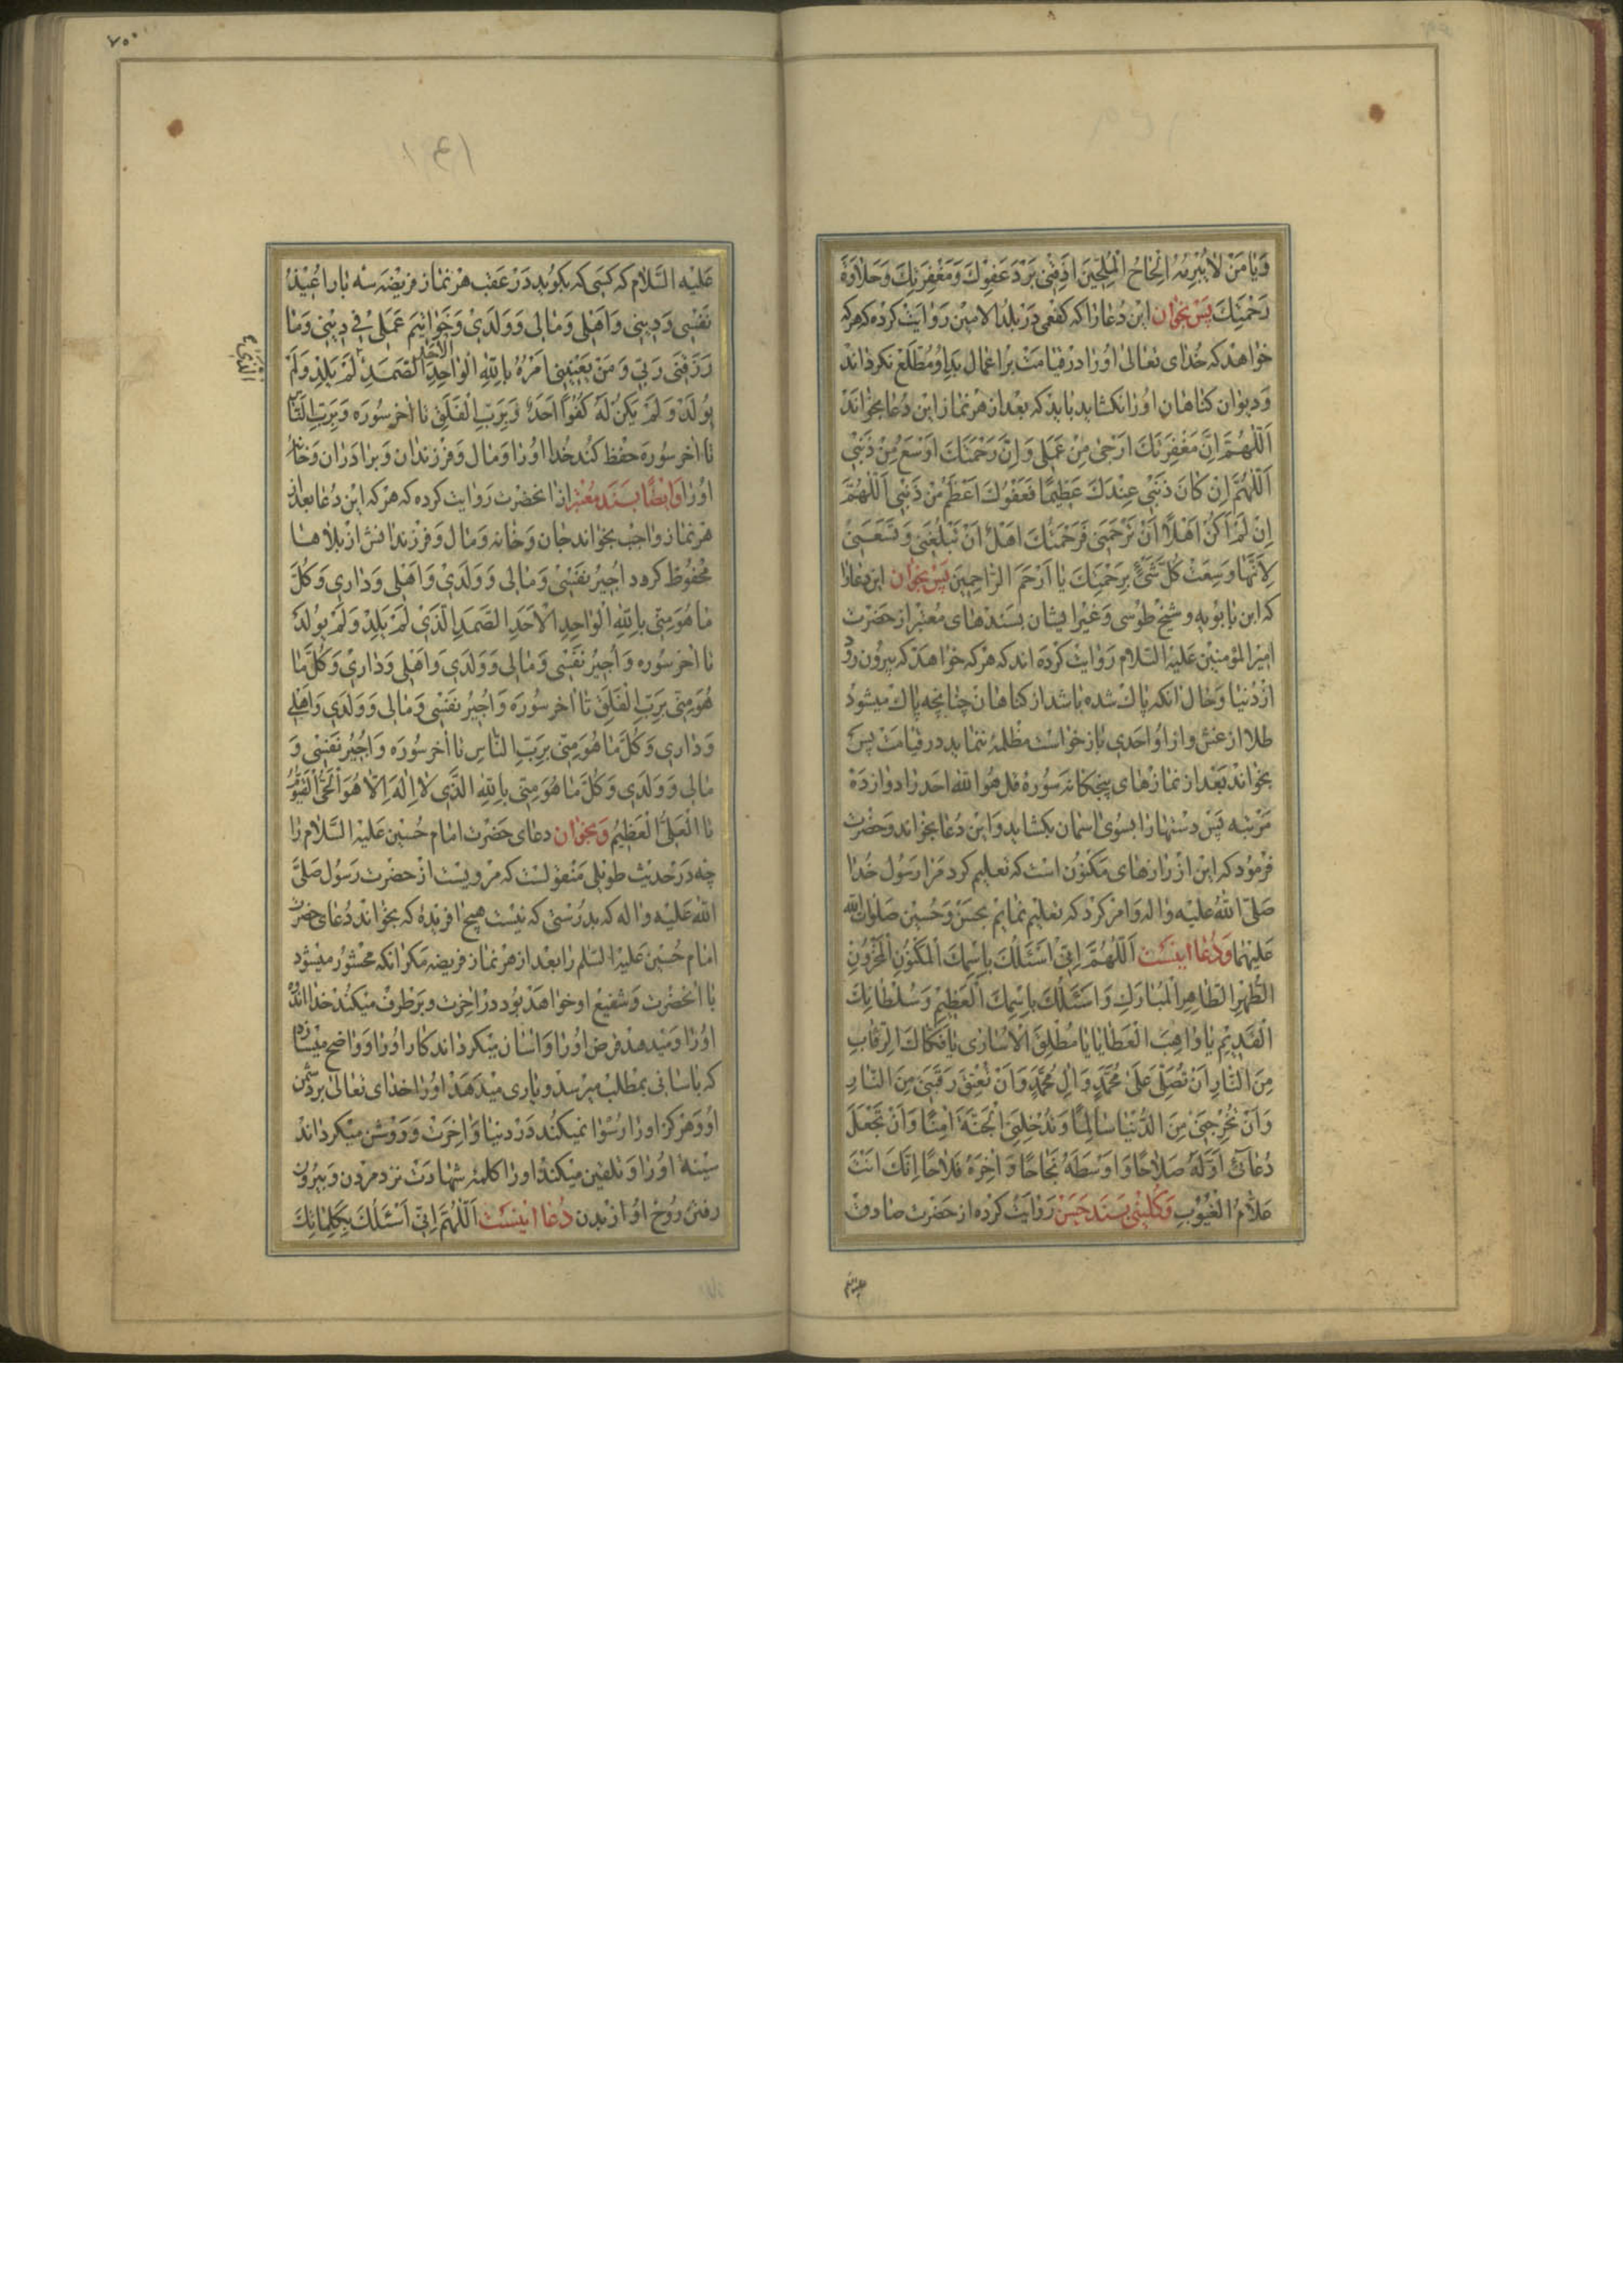 وَيَا مَنْ لَا يُبْرِمُهُ اِلْحَاحُ الْمُلِحّينَ اَذِقْنى بَرْدَ عَفْوِكَ وَمَغْفِرَتِكَ وَحَلَاوَةَ
رَحْمَتِكَ پس بخوان این دعا را که کفعمی در بلد الامین روایت کرده که هر که
خواهد که خدای تعالی او را در قیامت بر اعمال بد او مطلع نکرداند
و دیوان کناهان او را نکشاید باید که بعد از هر نماز این دعا بخواند
اَللّهُمَّ اِنَّ مَغْفِرَتَكَ اَرْجى مِنْ عَمَلى وَاِنَّ رَحْمَتَكَ اَوْسَعُ مِنْ ذَنْبى
اَللّهُمَّ اِنْ كَانَ ذَنْبى عِنْدَكَ عَظيمًا فَعَفْوُكَ اَعْظَمُ مِنْ ذَنْبى اَللّهُمَّ
اِنْ لَمْ اَكُنْ اَهْلًا اَنْ تَرْحَمَنى فَرَحْمَتُكَ اَهْلٌ اَنْ تَبْلُغَنى وَتَسَعَنى
لِاَنَّهَا وَسِعَتْ كُلَّ شَىْءٍ بِرَحْمَتِكَ يَا اَرْحَمَ الرَّاحِمِينَ پس بخوان این دعا را
که ابن بابویه و شیخ طوسی و غیر ایشان بسندهای معتبر از حضرت
امیر المؤمنین علیه السلام روایت کرده اند که هر که خواهد که بیرون رود
از دنیا و حال انکه پاک شده باشد از کناهان چنانچه پاک میشود
طلا از غش و از او احدی باز خواست مظلمه ننماید در قیامت پس
بخواند بعد از نمازهای پنجکانه سوره قل هو الله احد را دوازده
مرتبه پس دستها را بسوی اسمان بکشاید و این دعا بخواند و حضرت
فرمود که این از رازهای مکنون است که تعلیم کرد مرا رسول خدا
صلی الله علیه واله و امر کرد که تعلیم نمایم بحسن و حسین صلوات الله
علیهما و دعا اینست اَللّهُمَّ اِنّى اَسْئَلُكَ بِاسْمِكَ الْمَكْنُونِ الْمَخْزُونِ
الطُّهْرِ الطَّاهِرِ الْمُبَارَكِ وَاَسْئَلُكَ بِاسْمِكَ الْعَظيمِ وَسُلْطَانِكَ
الْقَديمِ يَا وَاهِبَ الْعَطَايَا يَا مُطْلِقَ الْاُسَارى يَا فَكَّاكَ الرِّقَابِ
مِنَ النَّارِ اَنْ تُصَلِّىَ عَلى مُحَمَّدٍ وَالِ مُحَمَّدٍ وَاَنْ تُعْتِقَ رَقَبَتى مِنَ النَّارِ
وَاَنْ تُخْرِجَنى مِنَ الدُّنْيَا سَالِمًا وَتُدْخِلَنِى الْجَنَّةَ امِنًا وَاَنْ تَجْعَلَ
دُعَائى اَوَّلَهُ صَلَاحًا وَاَوْسَطَهُ نَجَاحًا وَاخِرَهُ فَلَاحًا اِنَّكَ اَنْتَ
عَلَّامُ الْغُيُوبِ و کلینی بسند حسن روایت کرده از حضرت صادق
علیه السلام
٧٠٠
علیه السلام که کسی که بکوید در عقب هر نماز فریضه سه بار اُعيذُ
نَفْسى وَدينى وَاَهْلى وَمَالى وَوَلَدى وَخَوَاتيمَ عَمَلى فى دينى وَمَا
رَزَقَنى رَبّى وَمَنْ يَعْنينى اَمْرُهُ بِاللهِ الْوَاحِدِ الْاَحَدِ الصَّمَدِ لَمْ يَلِدْ وَلَمْ
يُولَدْ وَلَمْ يَكُنْ لَهُ كُفُوًا اَحَدٌ وَبِرَبِّ الْفَلَقِ تا اخر سوره وَبِرَبِّ النَّاسِ
تا اخر سوره حفظ کند خدا او را و مال و فرزندان و برادران و خانه
او را و ایضا بسند معتبر از انحضرت روایت کرده که هر که این دعا بعد از
هر نماز واجب بخواند جان و خانه و مال و فرزندانش از بلاها
محفوظ کردد اُجيرُ نَفْسى وَمَالى وَوَلَدى وَاَهْلى وَدَارى وَكُلَّ
مَا هُوَ مِنّى بِاللهِ الْوَاحِدِ الْاَحَدِ الصَّمَدِ الَّذى لَمْ يَلِدْ وَلَمْ يُولَدْ
تا اخر سوره وَاُجيرُ نَفْسى وَمَالى وَوَلَدى وَاَهْلى وَدَارى وَكُلَّ مَا
هُوَ مِنّى بِرَبِّ الْفَلَقِ تا اخر سوره وَاُجيرُ نَفْسى وَمَالى وَوَلَدى وَاَهْلى
وَدَارى وَكُلَّ مَا هُوَ مِنّى بِرَبِّ النَّاسِ تا اخر سوره وَاُجيرُ نَفْسى وَ
مَالى وَوَلَدى وَكُلَّ مَا هُوَ مِنّى بِاللهِ الَّذى لَا اِلهَ اِلَّا هُوَ الْحَىُّ الْقَيُّومُ
تا الْعَلِىُّ الْعَظيمُ و بخوان دعای حضرت امام حسین علیه السلام را
چه در حدیث طویلی منقولست که مرویست از حضرت رسول صلی
الله علیه واله که بدرستی که نیست هیچ افریدهٔ که بخواند دعای حضرت
امام حسین علیه السلم را بعد از هر نماز فریضه مکر انکه محشور میشود
با انحضرت و شفیع او خواهد بود در اخرت و برطرف میکند خدا اندوه
او را و میدهد قرض او را و اسان میکرداند کار او را و واضح میسازد راه
که باسانی بمطلب میرسد و یاری میدهد او را خدای تعالی بر دشمن
او و هرکز او را رسوا نمیکند در دنیا و اخرت و روشن میکرداند
سینهٔ او را و تلقین میکند او را کلمهٔ شهادت نزد مردن و بیرون
رفتن روح او از بدن دعا اینست اَللّهُمَّ اِنّى اَسْئَلُكَ بِكَلِمَاتِكَ